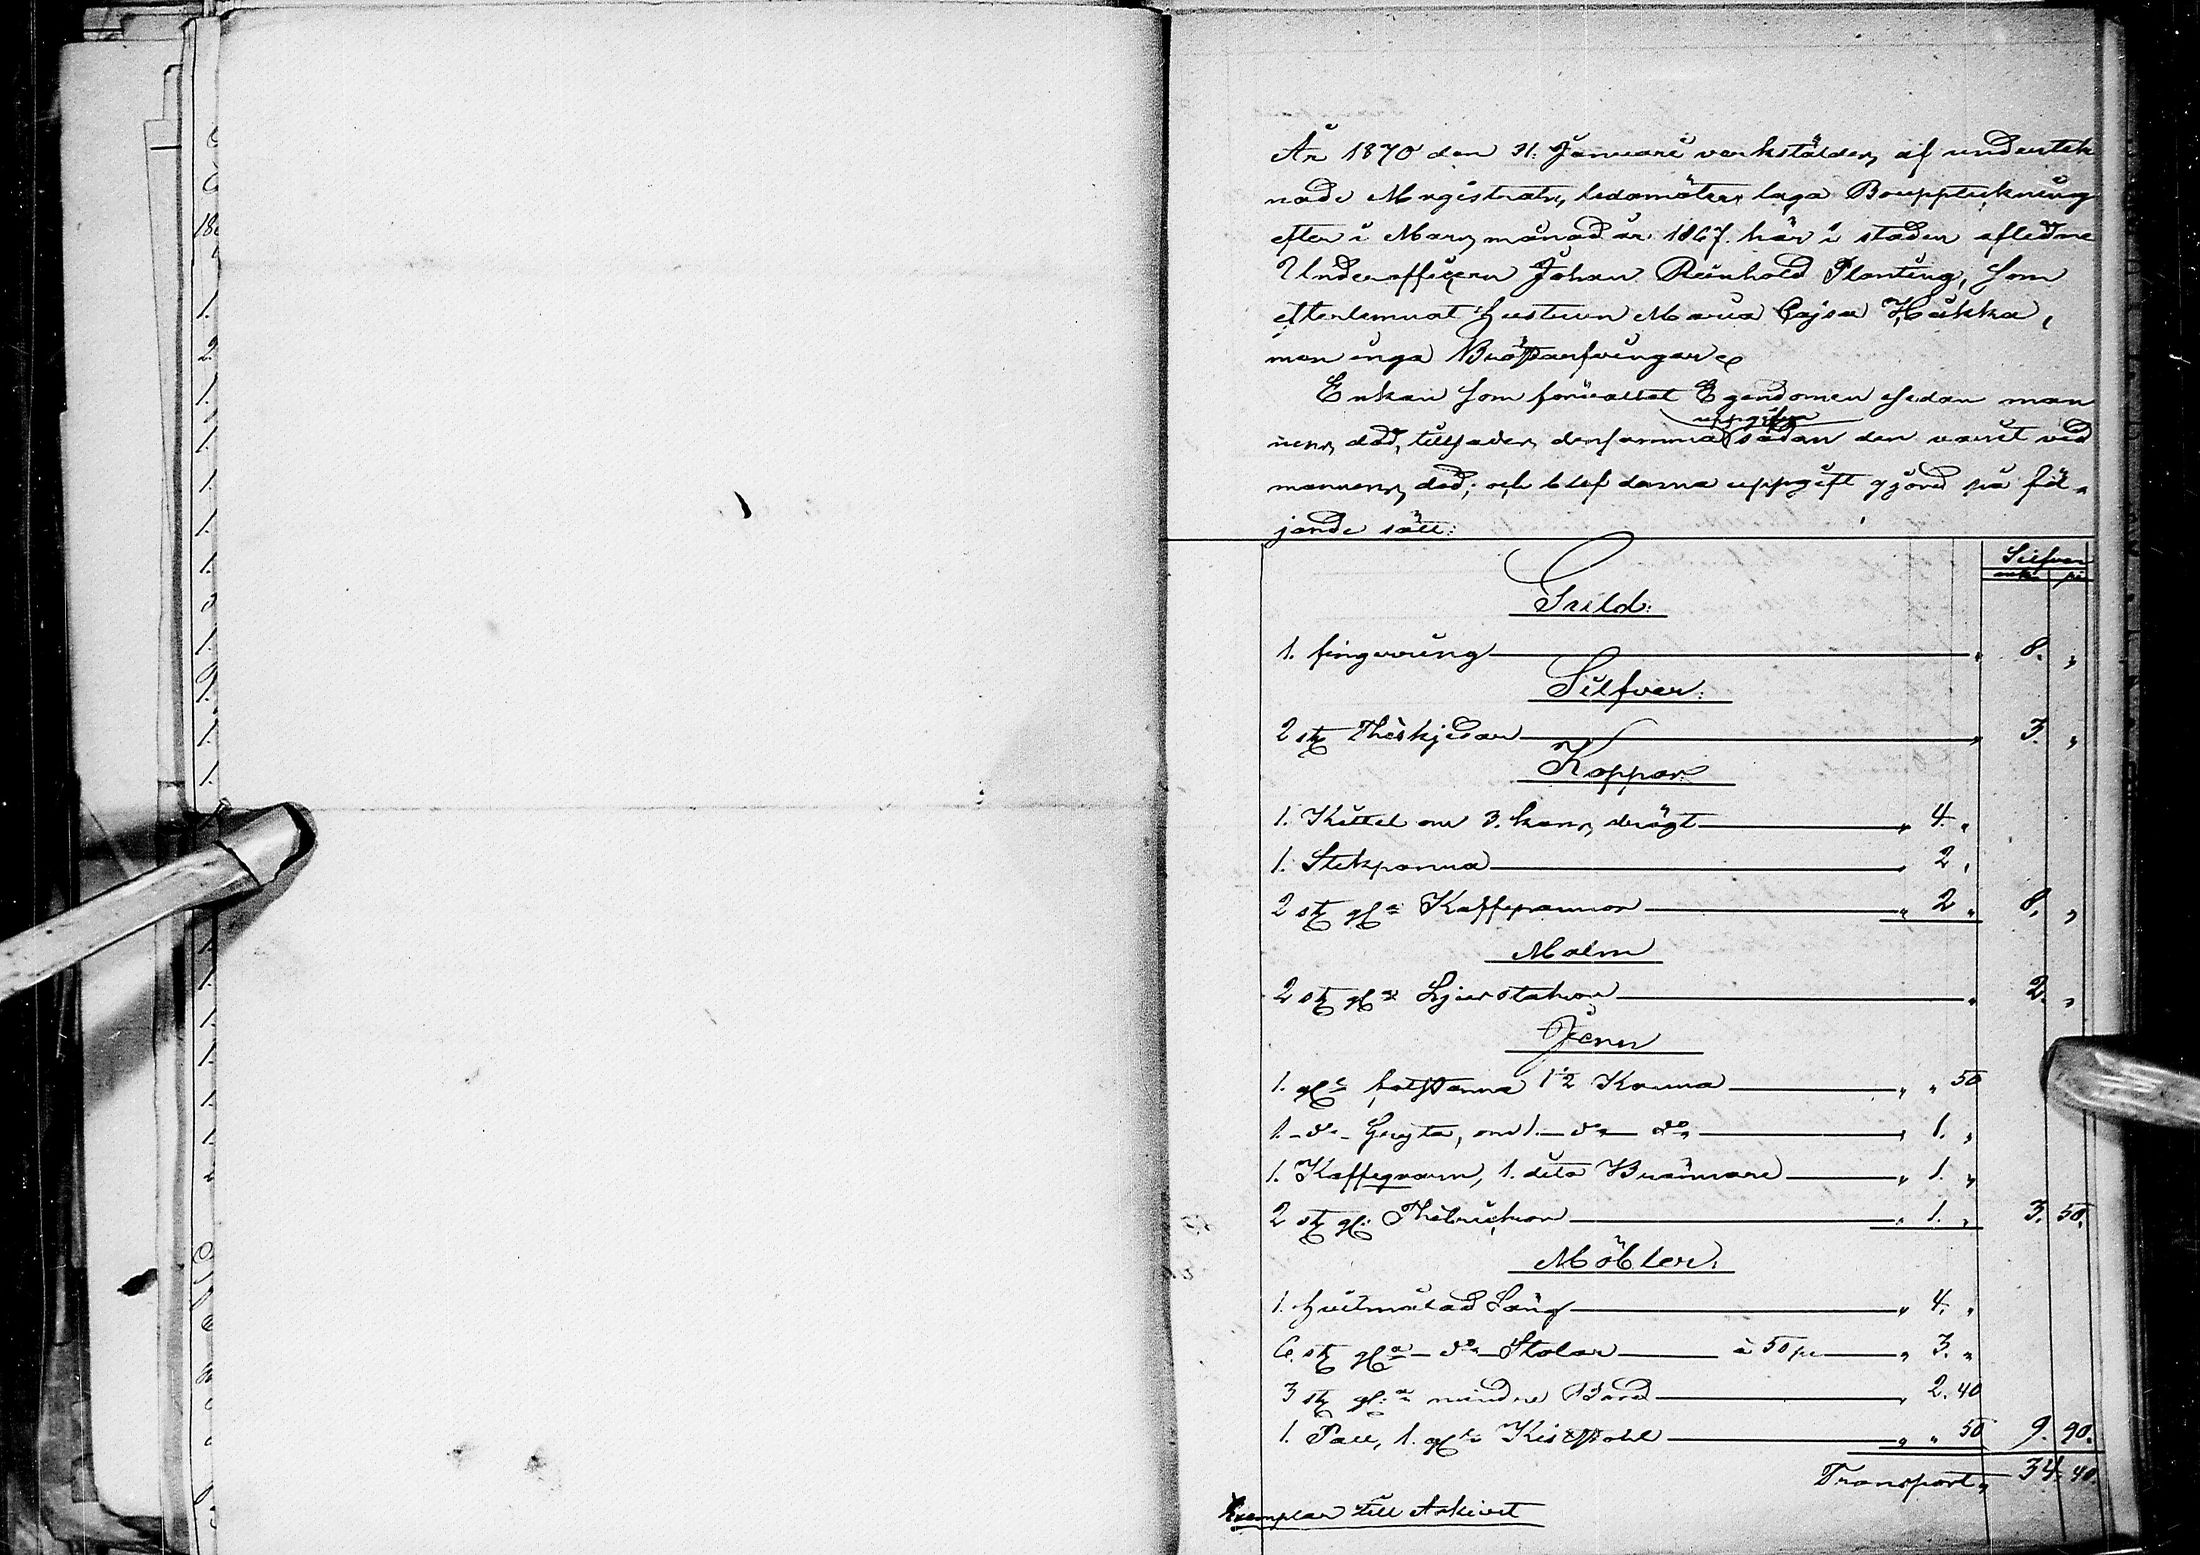 År 1870 den 31. Januari verkstäldes af underteck
nade Magistrats ledamöter laga Bouppteckning
efter i Mars månad år 1867. här i staden aflidne
Underofficern Johan Reinhold Planting, som
efterlemnat Hustrun Maria Cajsa Hukka,
men inga Bröstarfvingar.
Enkan som förvaltat Egendomen sedan man
uppgifva
nens död, tillsades densamma sådan den varit ved
mannens död; och blef denna uppgift gjord på föl-
jande sätt:
Silfver
mark pi
Guld:
1. fingerring " 8. "
Silfver:
2 st Theskjedar " 3. "
Koppar:
1. Kittel om 3. kans drägt " 4. "
1. Stekpanna " 2 "
2 st gla Kaffepannor " 2 " 8. "
Malm
2 st gla Ljusstakar " 2. "
Jern
1. gl 1/2 Kanna " " 50
1 - do - Gryta, om 1. - do - do " 1. "
1. Kaffeqvarn, 1. dito Brännare " 1. "
2 st gl: Thebrickor " 1. " 3. 50.
Möbler:
1. hvitmålad Säng " 4. "
6. st gla - do - Stolar à 50 pi " 3. "
3 st gl:a mindre Bord " 2. 40
1. Pall, 1. gl " " 50 9. 90.
Transport " 34. 40.
Exemplar till Arkivet